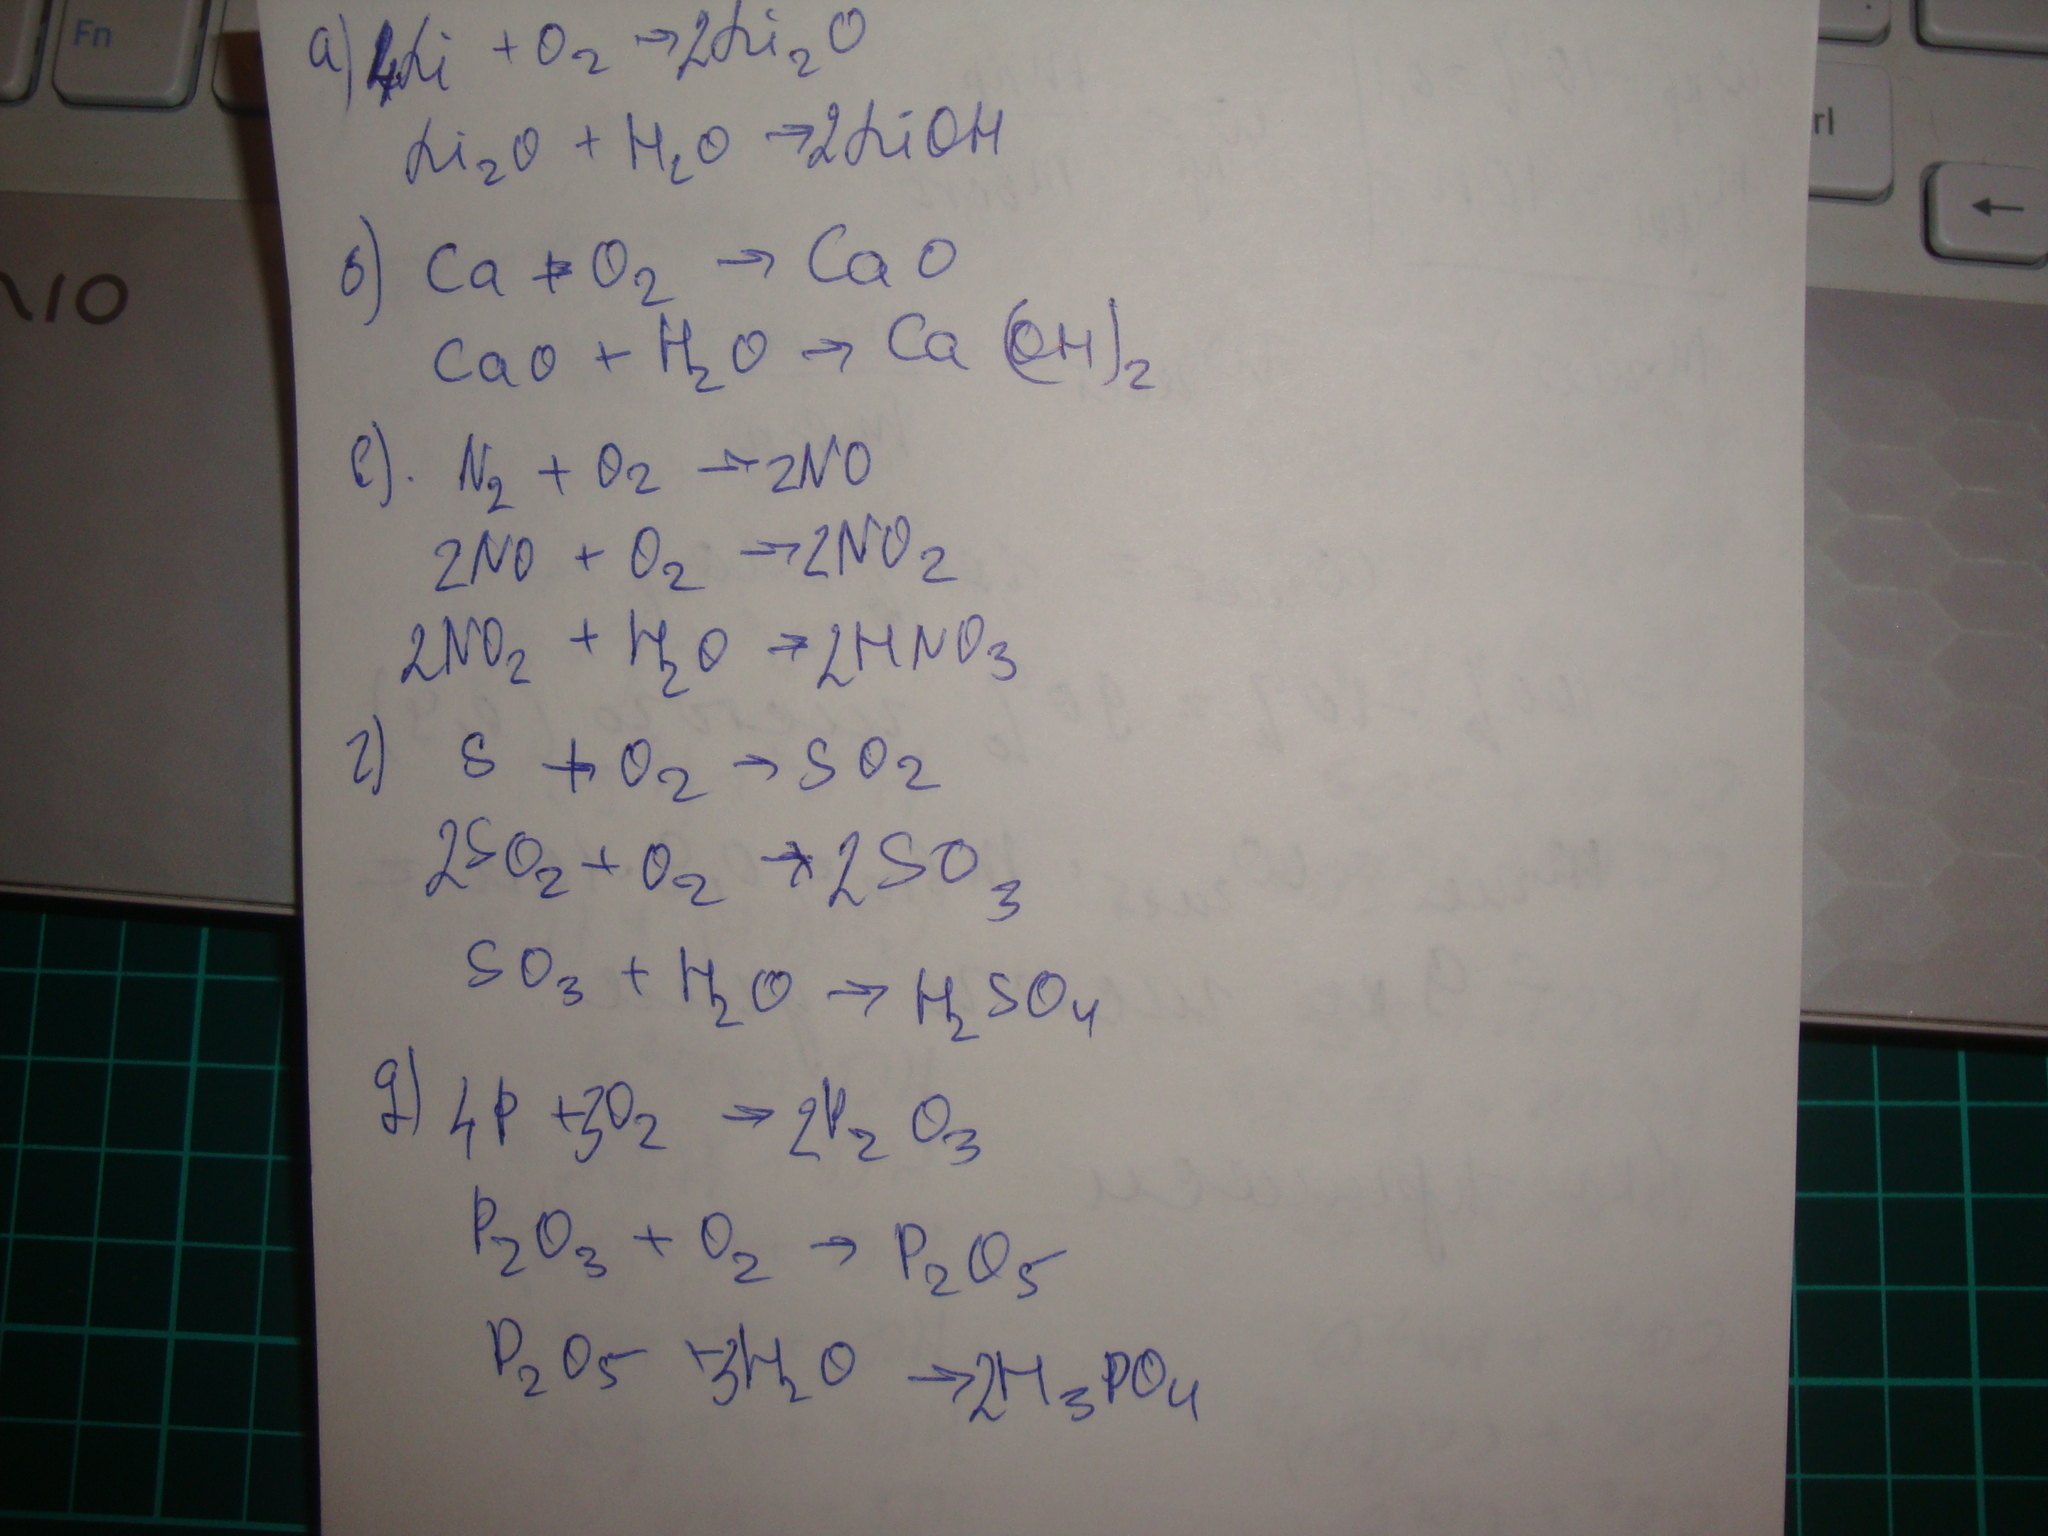 Fn
rl
←
VAIO
а) 4Li + O2 → 2Li2O
Li2O + H2O → 2LiOH
б) Ca + O2 → CaO
CaO + H2O → Ca(OH)2
в). N2 + O2 → 2NO
2NO + O2 → 2NO2
2NO2 + H2O → 2HNO3
г) S + O2 → SO2
2SO2 + O2 → 2SO3
SO3 + H2O → H2SO4
д) 4P + 3O2 → 2P2O3
P2O3 + O2 → P2O5
P2O5 + 3H2O → 2H3PO4